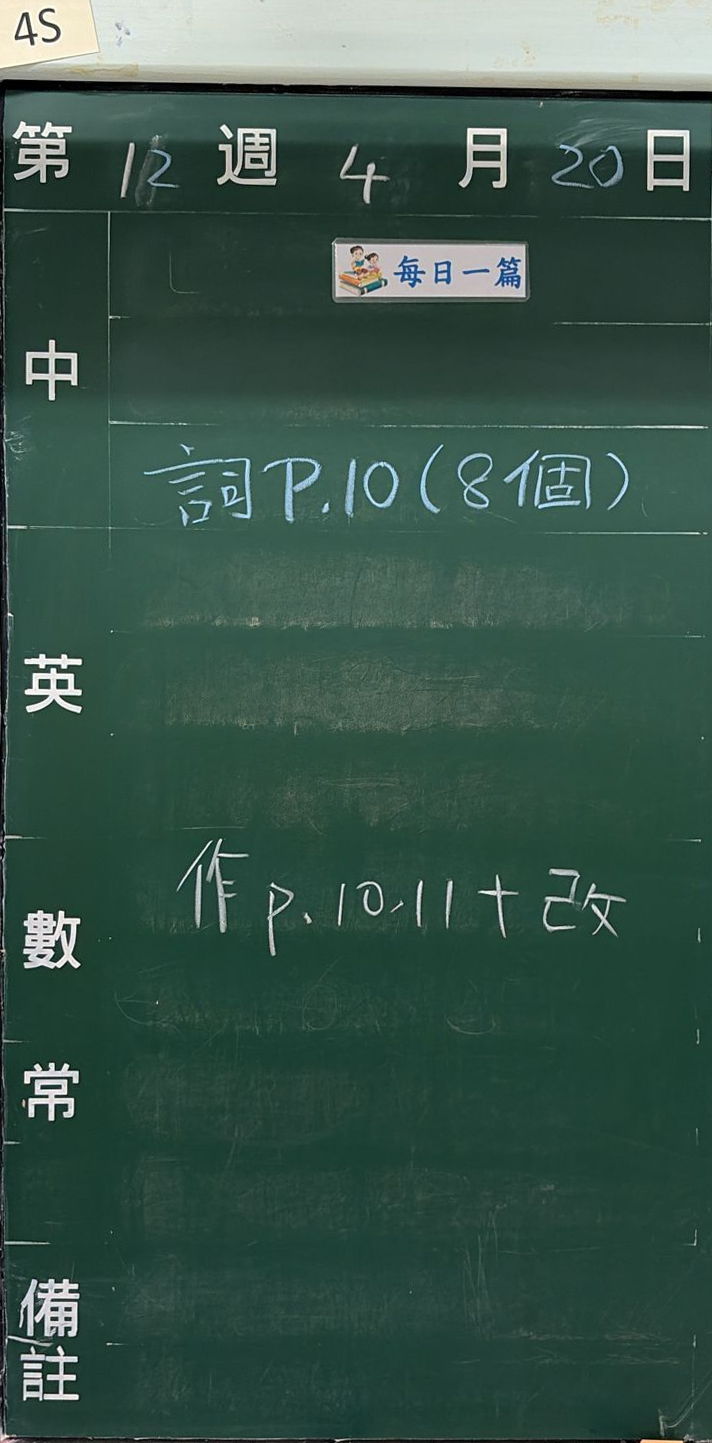 4S
第 12 週 4 月 20 日
每日一篇
中
詞P.10(8個)
英
數 作p.10,11+改
常
備註